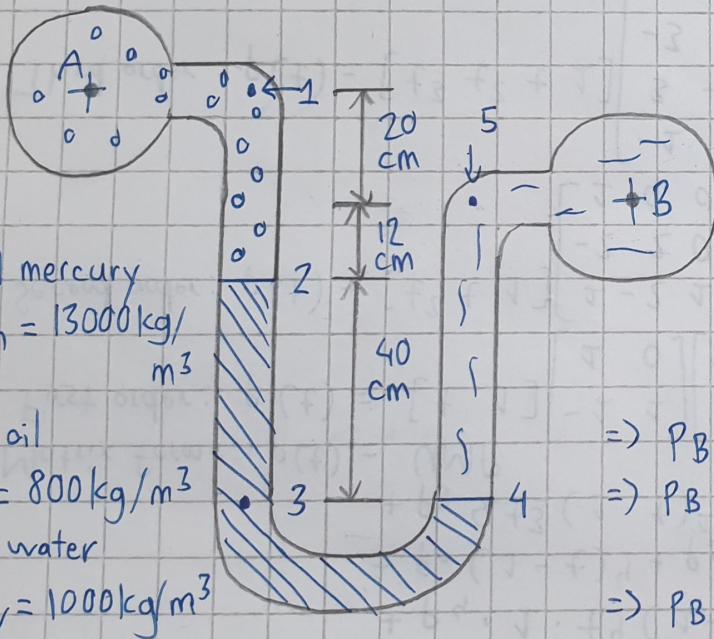 A
1
20
cm
5
B
12
cm
mercury
2
= 13000 kg/
m³
40
cm
oil
= 800 kg/m³
3
4
water
= 1000 kg/m³
=> PB
=> PB
=> PB